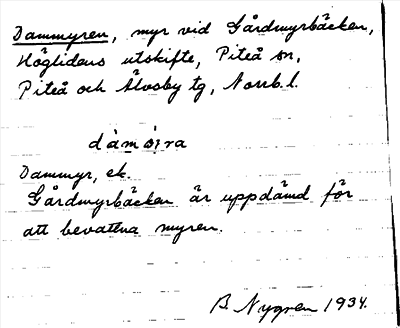 Dammyren, myr vid Gårdmyrbäcken,
Höglidens utskifte, Piteå sn,
Piteå och Älvsby tg, Norrb. l.
dàmøi̯ra
Dammyr, ek.
Gårdmyrbäcken är uppdämd för
att bevattna myren.
B. Nygren 1934.